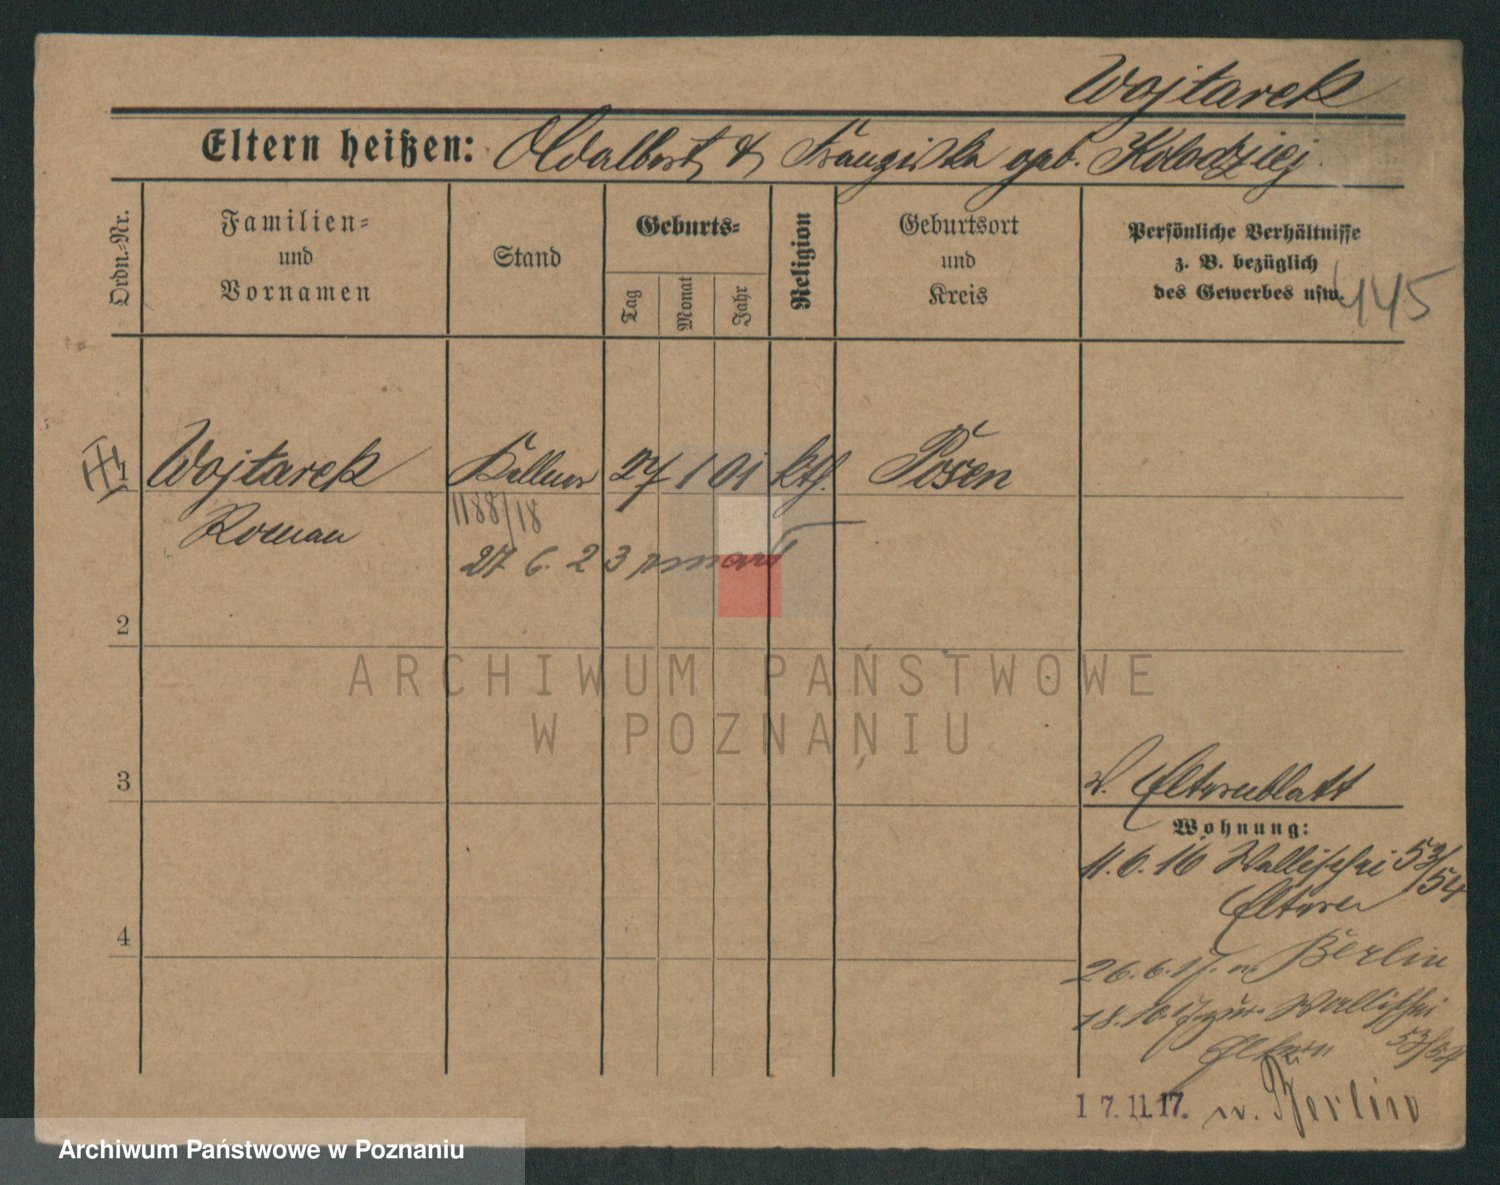 Wojtarek
Eltern heißen: Adalbert & Franziska geb. Kolodziej.
Ordn.-Nr.
Familien-
und
Vornamen
Stand
Geburts-
Tag
Monat
Jahr
Religion
Geburtsort
und
Kreis
Persönliche Verhältnisse
z. B. bezüglich
des Gewerbes usw.
445
1 Wojtarek Kellner 27 1 01 kth. Posen
Roman
1188/18
27. 6. 23
2
ARCHIWUM PAŃSTWOWE
W POZNANIU
3
v. Elternblatt
Wohnung:
11.6.16 Wallischei 53/54
Eltern
4
26.6.17. n. Berlin
18.10.17 zur. Wallischei
Eltern 53/54
17.11.17. n. Berlin
Archiwum Państwowe w Poznaniu